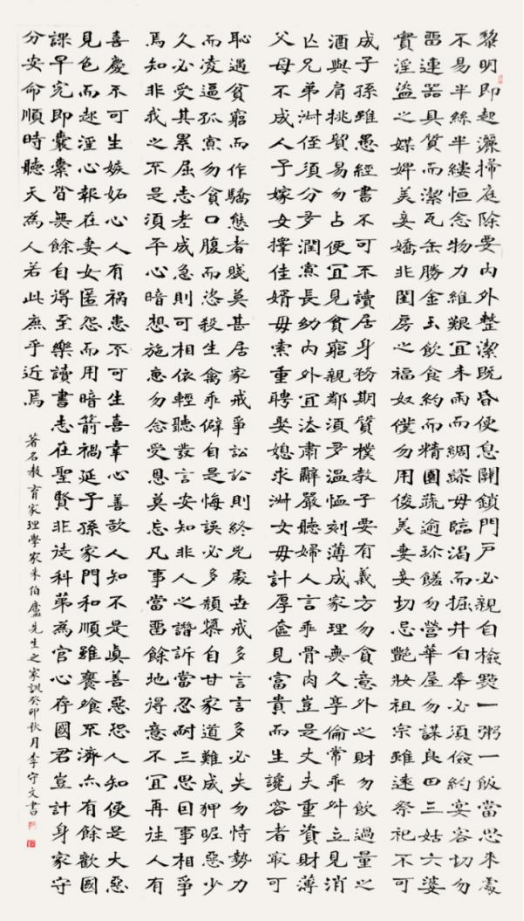 黎明即起灑掃庭除要内外整潔既昏便息關鎖門戶必親自檢點一粥一飯當思來處
不易半絲半縷恒念物力維艱宜未雨而綢繆毋臨渴而掘井自奉必須儉約宴客切勿
留連器具質而潔瓦缶勝金玉飲食約而精園蔬逾珍饈勿營華屋勿謀良田三姑六婆
實淫盜之媒婢美妾嬌非閨房之福奴僕勿用俊美妻妾切忌艷妝祖宗雖遠祭祀不可
成子孫雖愚經書不可不讀居身務期質樸教子要有義方勿貪意外之財勿飲過量之
酒與肩挑貿易勿占便宜見貧窮親鄰須多溫恤刻薄成家理無久享倫常乖舛立見消
亾兄弟叔侄須分多潤寡長幼内外宜法肅辭嚴聽婦人言乖骨肉豈是丈夫重資財薄
父母不成人子嫁女擇佳婿毋索重聘娶媳求淑女毋計厚奩見富貴而生諂容者最可
恥遇貧窮而作驕態者賤莫甚居家戒爭訟訟則終凶處世戒多言言多必失勿恃勢力
而凌逼孤寡勿貪口腹而恣殺生禽乖僻自是悔誤必多頹隳自甘家道難成狎昵惡少
久必受其累屈志老成急則可相依輕聽發言安知非人之譖訴當忍耐三思因事相爭
焉知非我之不是須平心暗想施惠勿念受恩莫忘凡事當留餘地得意不宜再往人有
喜慶不可生嫉妬心人有禍患不可生喜幸心善欲人知不是真善惡恐人知便是大惡
見色而起淫心報在妻女匿怨而用暗箭禍延子孫家門和順雖饔飧不濟亦有餘歡國
課早完即囊橐皆無餘自得至樂讀書志在聖賢非徒科第為官心存國君豈計身家守
分安命順時聽天為人若此庶乎近焉
著名教育家理學家朱伯廬先生之家訓癸卯秋月李守文書